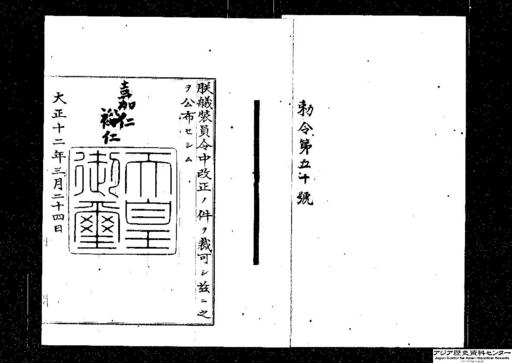 勅令第五十號
朕艤裝員令中改正ノ件ヲ裁可シ玆ニ之
ヲ公布セシム
嘉仁
裕仁
天皇
御璽
大正十二年三月二十四日
アジア歴史資料センター
Japan Center for Asian Historical Records